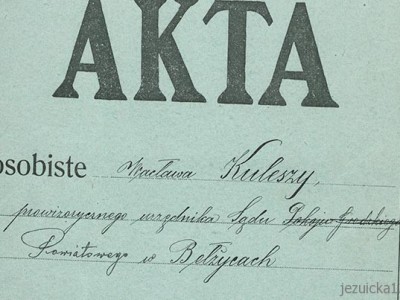 AKTA
osobiste Wacława Kuleszy,
prowizorycznego urzędnika Sądu Pokoju Grodzkiego
Powiatowego w Bełżycach
jezuicka1